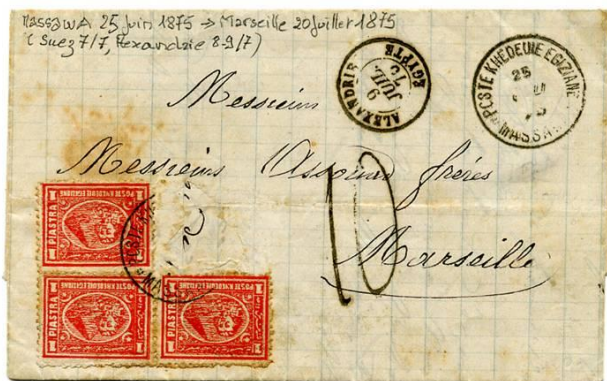 MassawA 25 juin 1875 → Marseille 20 juillet 1875
(Suez 7/7, Alexandrie 8-9/7)
ALEXANDRIE
EGYPTE
9
JUIL
POSTE KHEDEUIE EGIZIANE
25
MASSA
Messieurs
Messieurs
frères
Marseille
10
POSTE KHEDEUIE EGIZIANE
1 PIASTRA 1
POSTE KHEDEUIE EGIZIANE
1 PIASTRA 1
POSTE KHEDEUIE EGIZIANE
1 PIASTRA 1